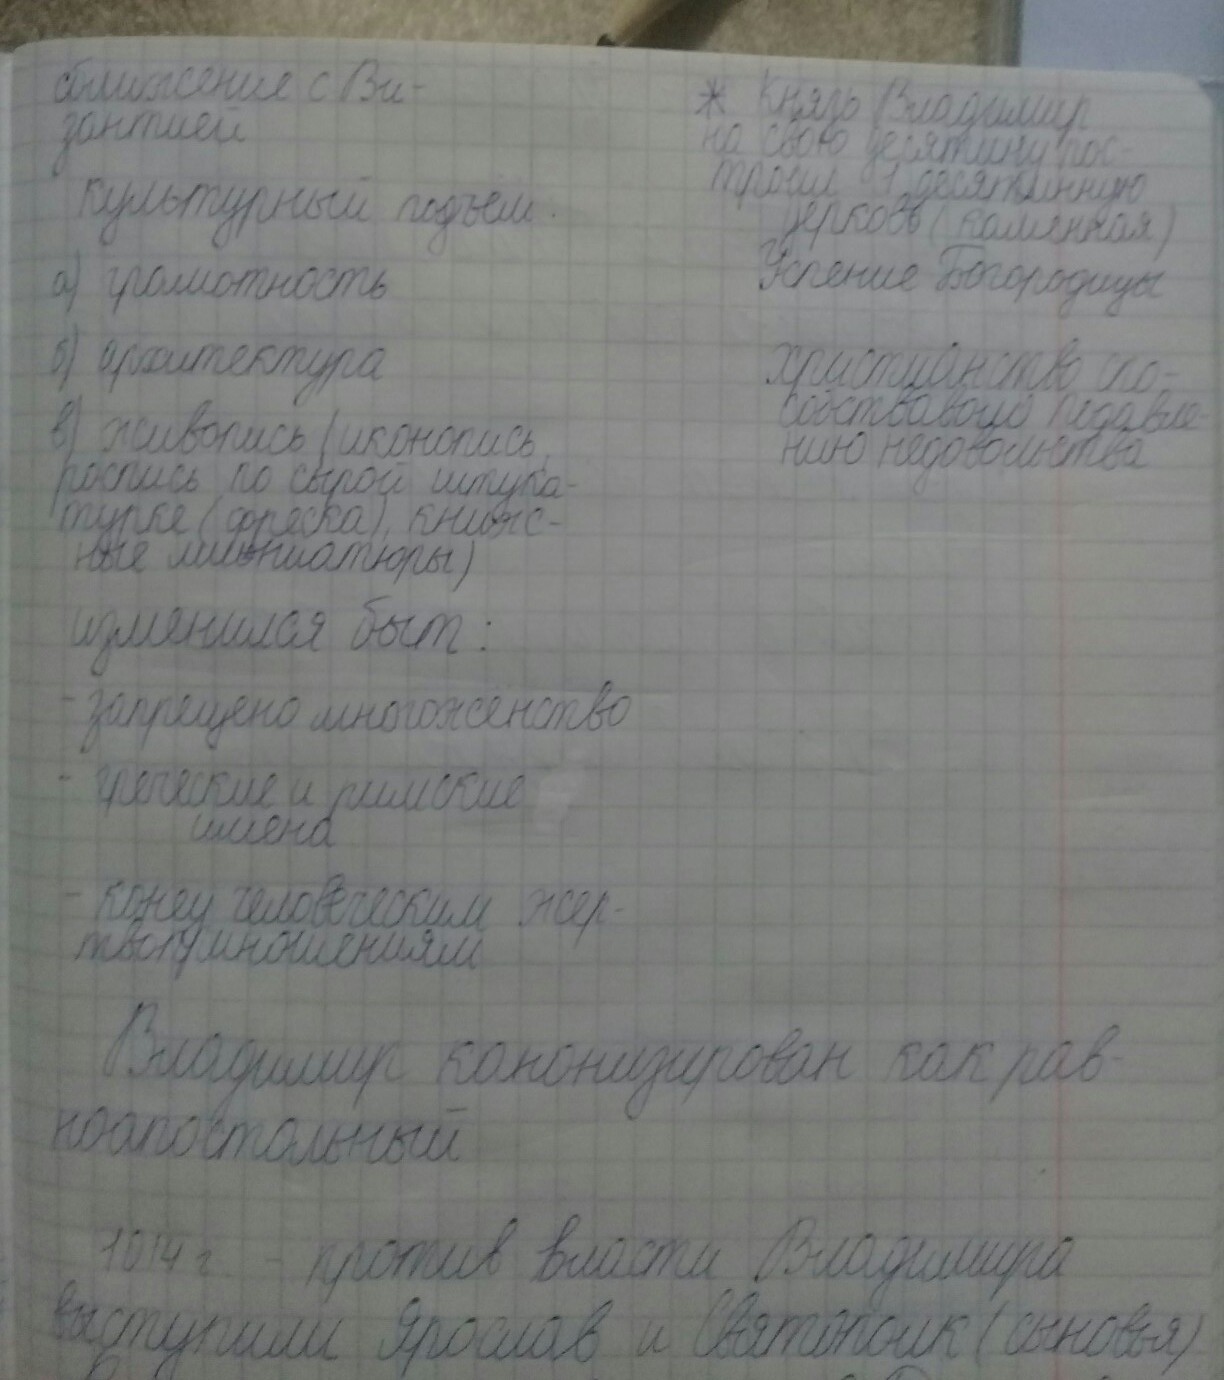 сближение с Ви-
зантией
культурный подъём.
а) грамотность
б) архитектура
в) живопись (иконопись,
роспись по сырой штука-
турке (фреска), книж-
ные миниатюры)
изменился быт:
- запрещено многоженство
- греческие и римские
имена
- конец человеческим жер-
твоприношениям
* Князь Владимир
на свою десятину пос-
троил 1 десятинную
церковь (каменная)
Успение Богородицы
христианство спо-
собствовало подавле-
нию недовольства
Владимир канонизирован как рав-
ноапостольный
1014 г. - против власти Владимира
выступили Ярослав и Святополк (сыновья)